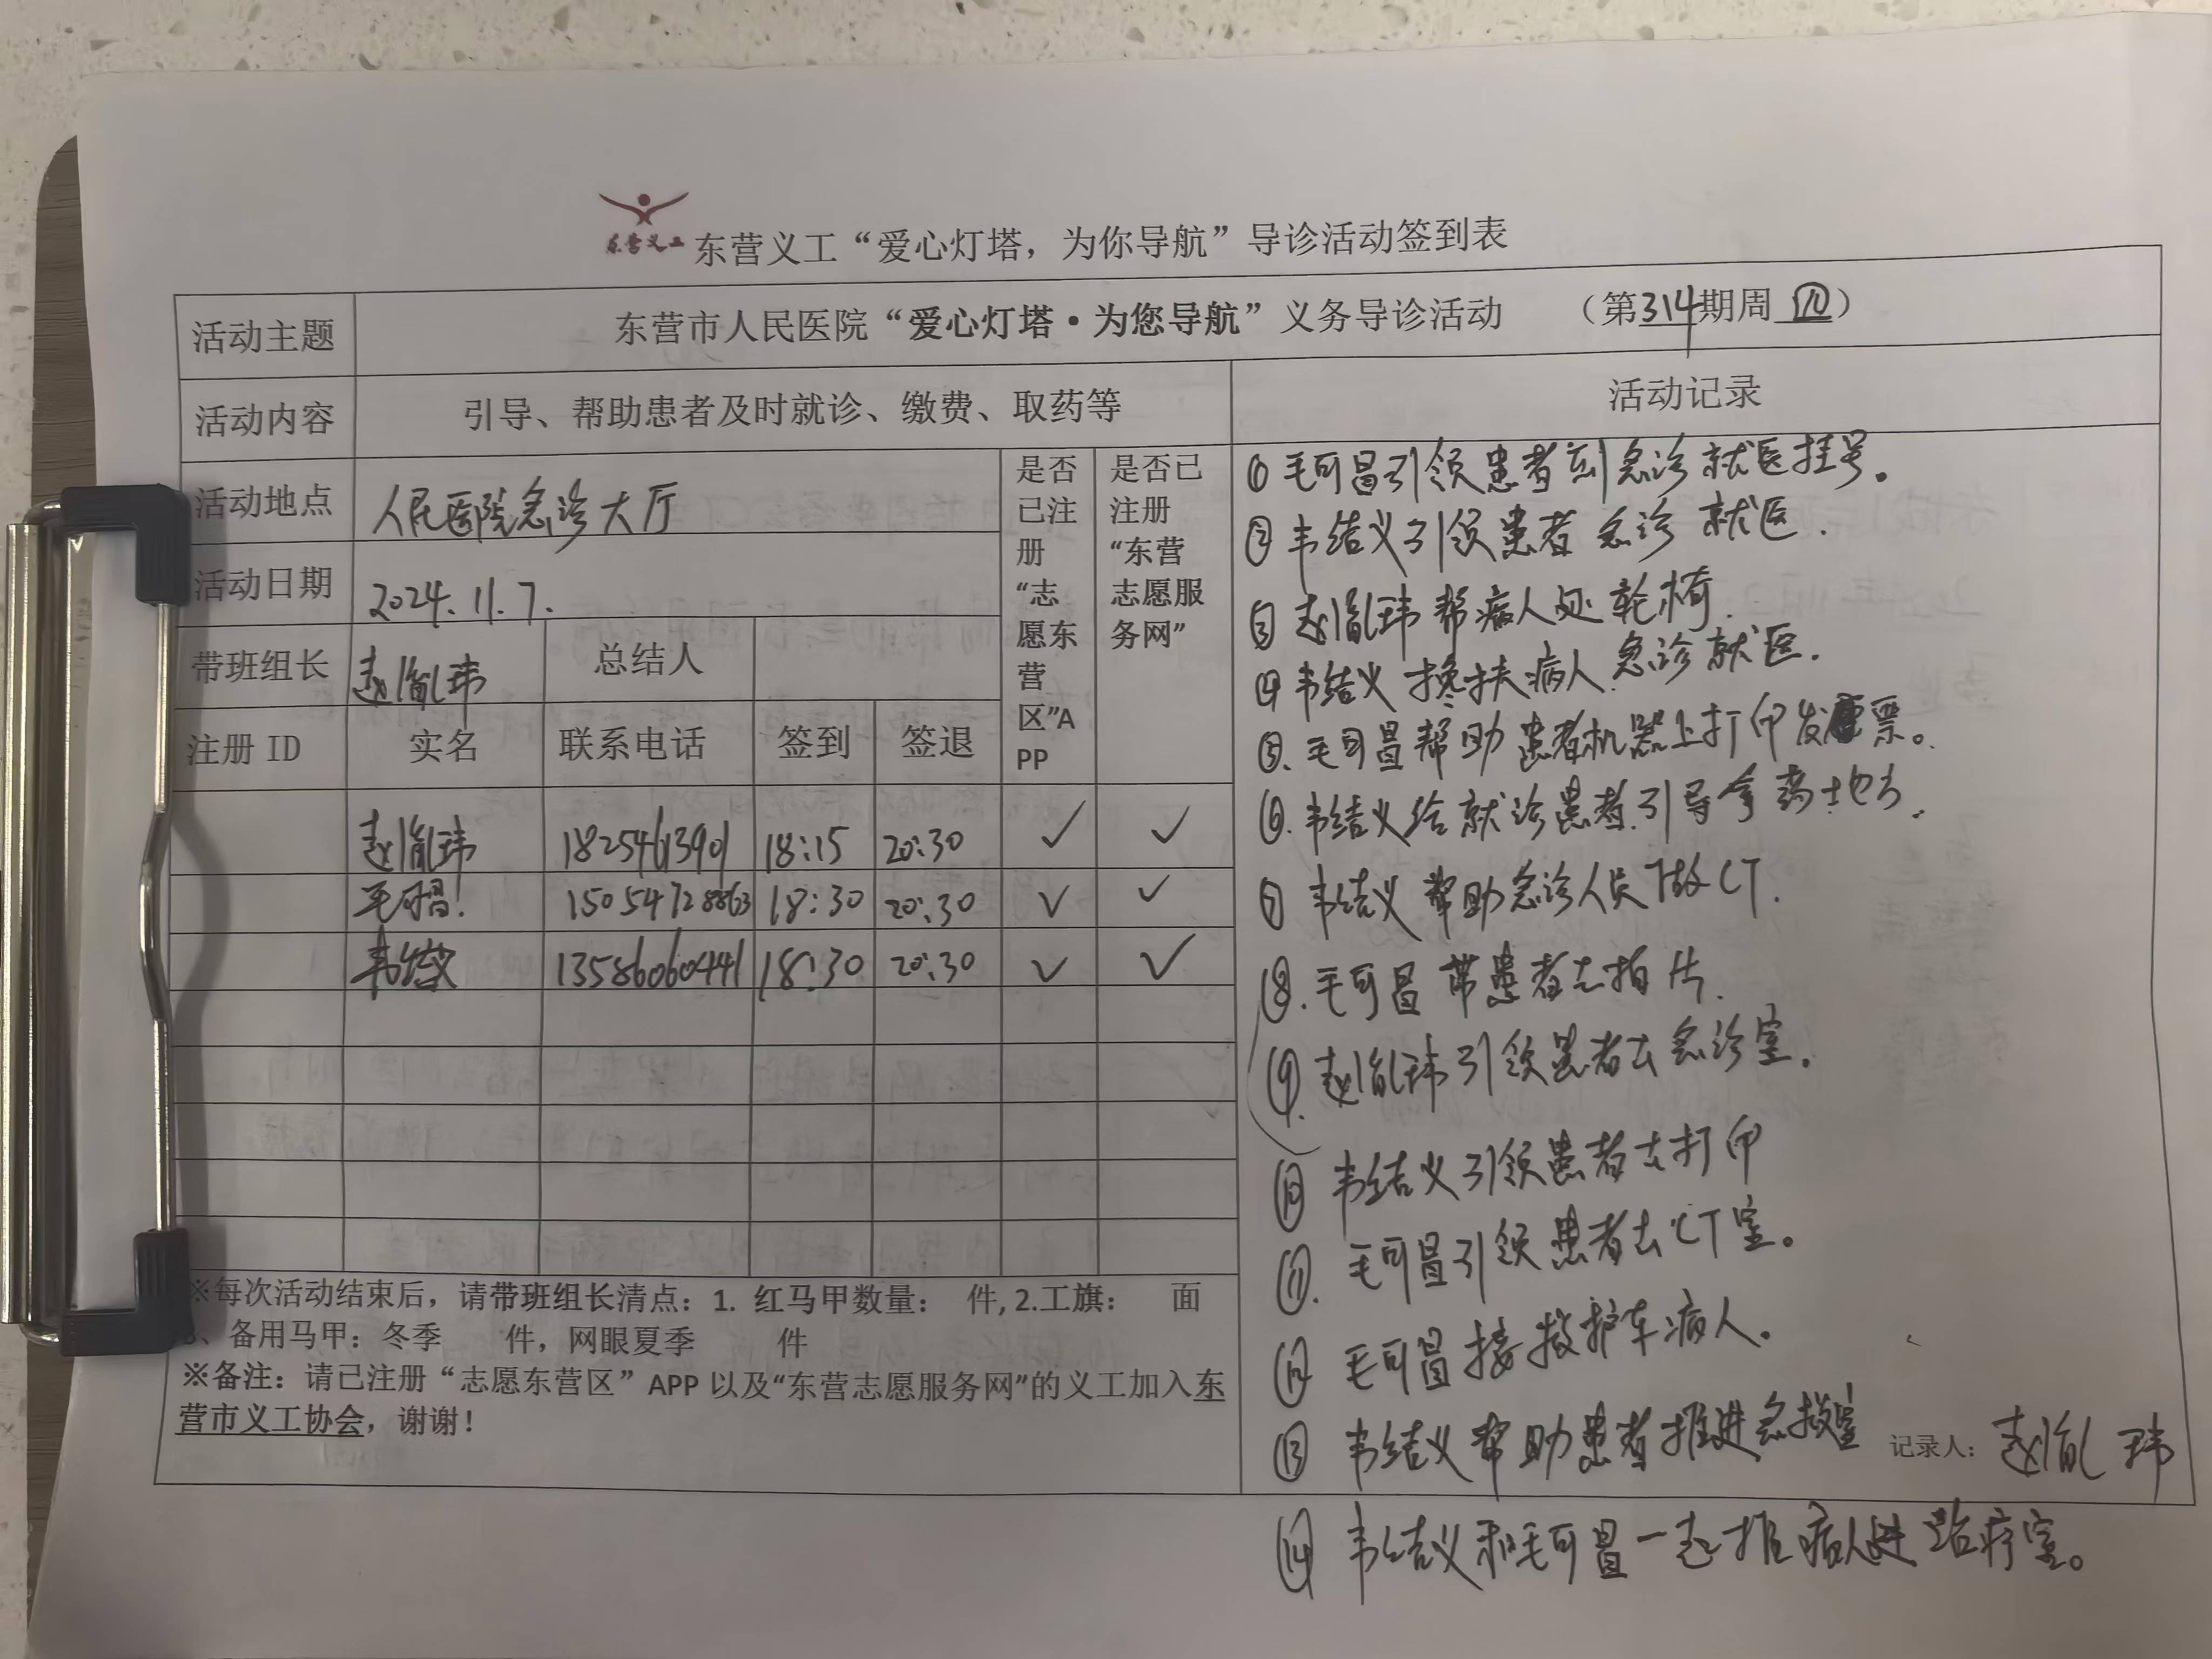 东营义工
东营义工“爱心灯塔，为你导航”导诊活动签到表
活动主题
东营市人民医院“爱心灯塔·为您导航”义务导诊活动 （第314期周四）
活动内容
引导、帮助患者及时就诊、缴费、取药等
活动记录
活动地点
人民医院急诊大厅
活动日期
2024.11.7.
带班组长
赵胤玮
总结人
是否
已注
册
“志
愿东
营
区”A
PP
是否已
注册
“东营
志愿服
务网”
注册 ID 实名 联系电话 签到 签退
赵胤玮 18254613901 18:15 20:30 ✓ ✓
毛可昌 15054728863 18:30 20:30 ✓ ✓
韦结义 13586060441 18:30 20:30 ✓ ✓
※每次活动结束后，请带班组长清点：1. 红马甲数量： 件, 2.工旗： 面
、备用马甲：冬季 件，网眼夏季 件
※备注：请已注册“志愿东营区”APP 以及“东营志愿服务网”的义工加入东
营市义工协会，谢谢！
① 毛可昌引领患者到急诊就医挂号。
② 韦结义引领患者急诊就医.
③ 赵胤玮帮病人还轮椅.
④ 韦结义搀扶病人急诊就医.
⑤. 毛可昌帮助患者机器上打印发票。
⑥. 韦结义给就诊患者引导拿药地方.
⑦ 韦结义帮助急诊人员做CT.
⑧. 毛可昌带患者去拍片.
⑨. 赵胤玮引领患者去急诊室.
⑩ 韦结义引领患者去打印
⑪. 毛可昌引领患者去CT室。
⑫ 毛可昌接救护车病人。
⑬ 韦结义帮助患者推进急救室
记录人：赵胤玮
⑭ 韦结义和毛可昌一起推病人进治疗室。